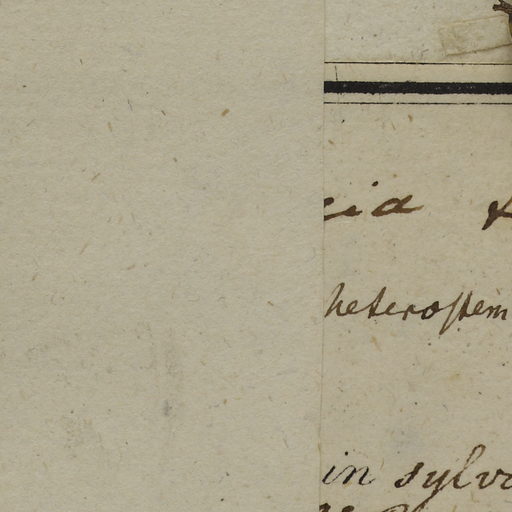 cia
heterostem
in sylv